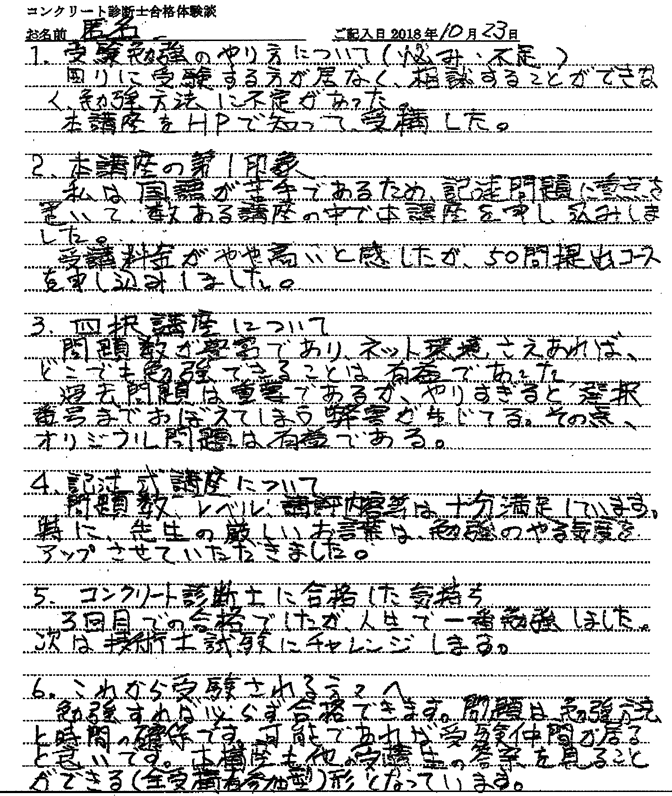 コンクリート診断士合格体験談
お名前 匿名 ご記入日 2018年10月23日
1. 受験勉強のやり方について(悩み・不足)
周りに受験する方が居なく、相談することができな
く、勉強方法に不足があった。
本講座をHPで知って、受講した。
2. 本講座の第1印象
私は国語が苦手であるため、記述問題に重点を
置いて、数ある講座の中で本講座を申し込みしま
した。
受講料金がやや高いと感じたが、50問提出コース
を申し込みしました。
3. 四択講座について
問題数が豊富であり、ネット環境さえあれば、
どこでも勉強できることは有益であった
過去問題は重要であるが、やりすぎると選択
番号までおぼえてしまう弊害が生じてる。その点、
オリジナル問題は有益である。
4. 記述式講座について
問題数、レベル、講評内容等は十分満足しています。
特に、先生の厳しいお言葉は、勉強のやる気度を
アップさせていただきました。
5. コンクリート診断士に合格した気持ち
3回目での合格でしたが、人生で一番勉強しました。
次は技術士試験にチャレンジします。
6. これから受験される方々へ
勉強すれば必らず合格できます。問題は勉強方法
と時間の確保です。可能であれば受験仲間が居る
と良いです。本講座も他の受講生の答案を見ること
ができる(全受講者参加型)形となっています。